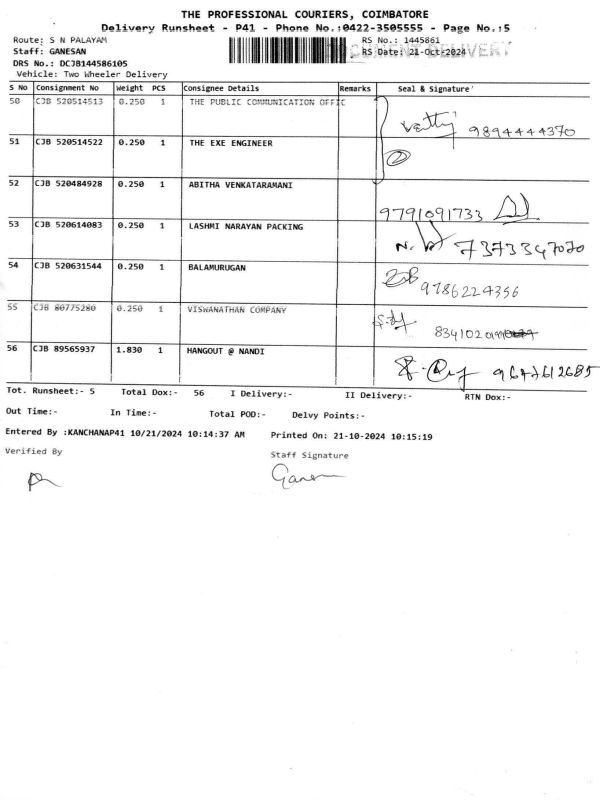 THE PROFESSIONAL COURIERS, COIMBATORE
Delivery Runsheet - P41 - Phone No.:0422-3505555 - Page No.:5
Route: S N PALAYAM RS No.: 1445861
Staff: GANESAN RS Date: 21-Oct-2024
DOCUMENT DELIVERY
DRS No.: DCJB144586105
Vehicle: Two Wheeler Delivery
S No Consignment No Weight PCS Consignee Details Remarks Seal & Signature
50 CJB 520514513 0.250 1 THE PUBLIC COMMUNICATION OFFIC
9894444370
51 CJB 520514522 0.250 1 THE EXE ENGINEER
2
52 CJB 520484928 0.250 1 ABITHA VENKATARAMANI
9791091733
53 CJB 520614083 0.250 1 LASHMI NARAYAN PACKING
7373347070
54 CJB 520631544 0.250 1 BALAMURUGAN
9786224356
55 CJB 80775280 0.250 1 VISWANATHAN COMPANY
56 CJB 89565937 1.830 1 HANGOUT @ NANDI
9677612685
Tot. Runsheet:- 5 Total Dox:- 56 I Delivery:- II Delivery:- RTN Dox:-
Out Time:- In Time:- Total POD:- Delvy Points:-
Entered By :KANCHANAP41 10/21/2024 10:14:37 AM Printed On: 21-10-2024 10:15:19
Verified By Staff Signature